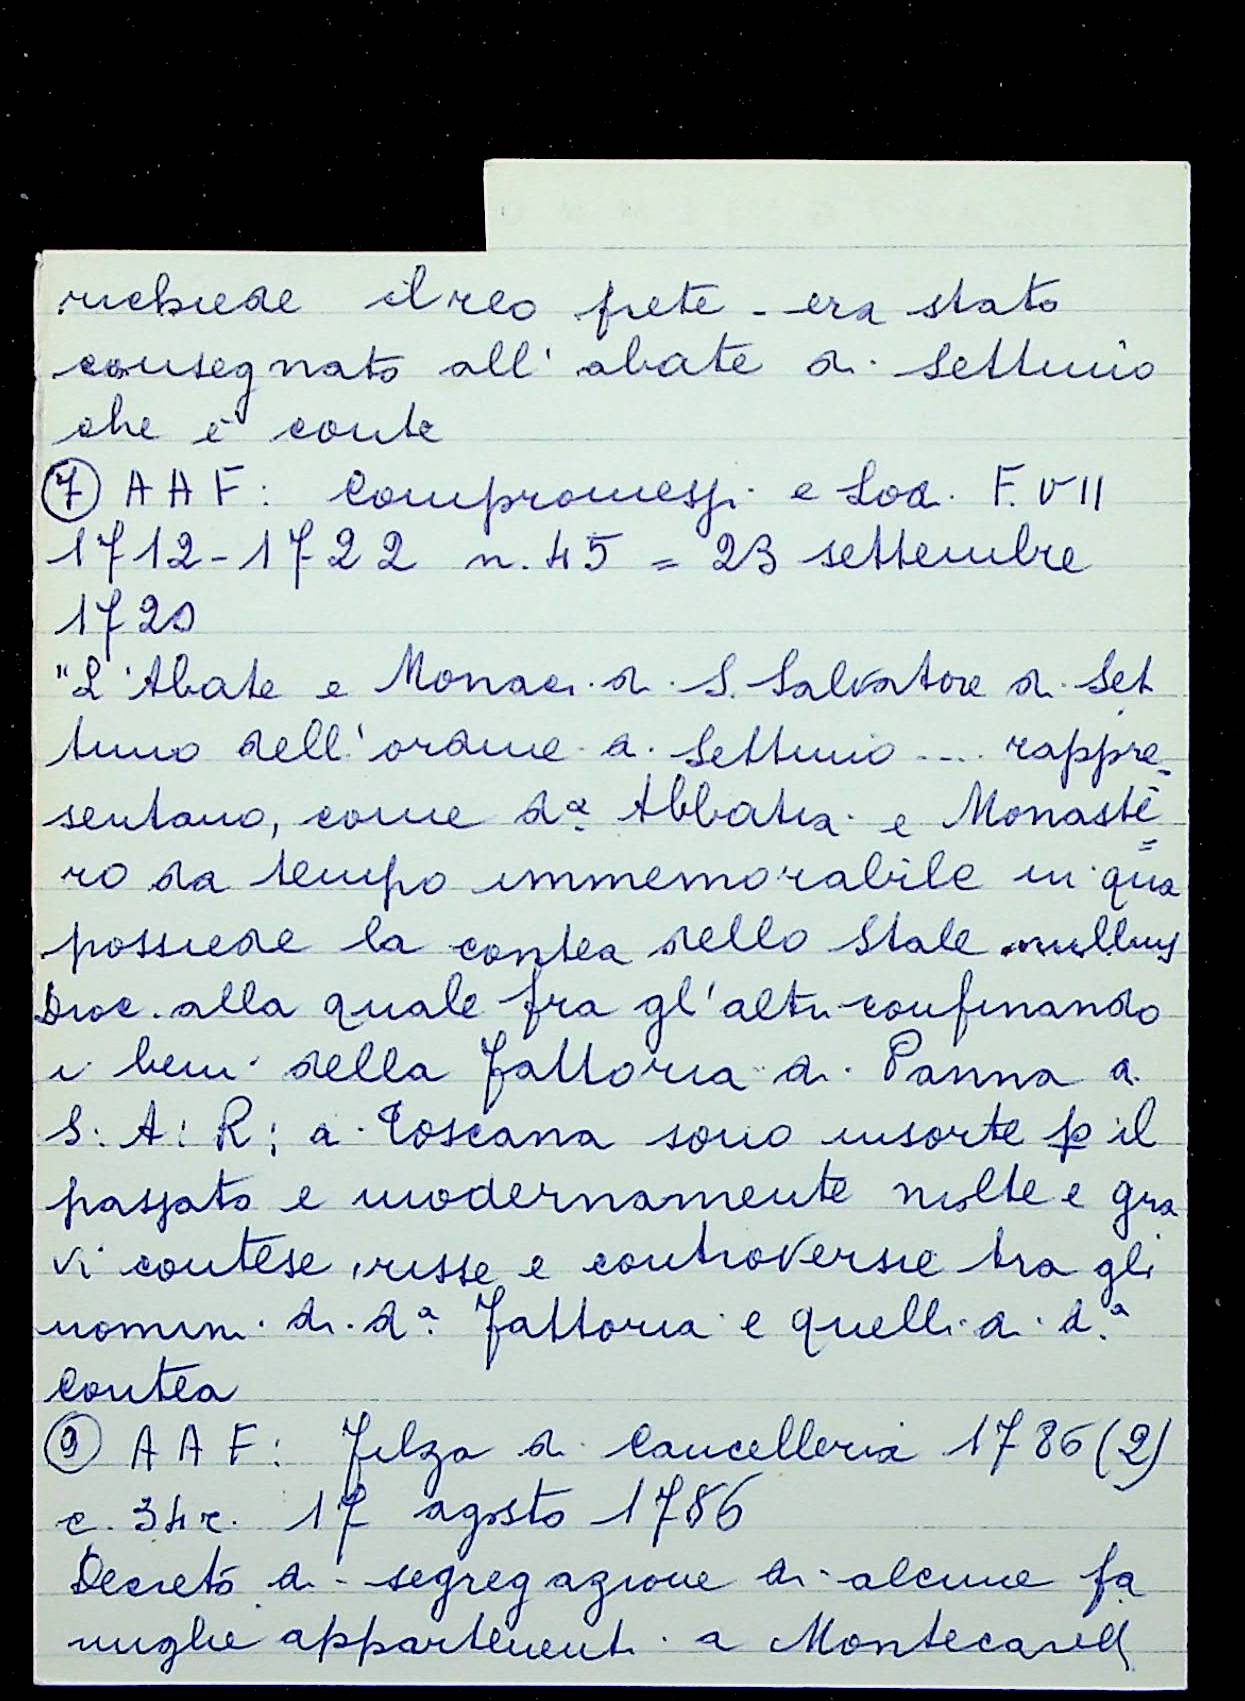 richiede il reo prete - era stato
consegnato all'abate di Settimo
che è conte
(7) A A F: Compromessi e Lodi F. VII
1712-1722 n. 45 = 23 settembre
1720
"L'Abate e Monaci di S. Salvatore di Set
timo dell'ordine di Settimo .... rappre=
sentano, come d.ª Abbatia e Monaste
ro da tempo immemorabile in qua
possiede la contea dello Stale nullius
Dioc. alla quale fra gl'altri confinando
i beni della Fattoria di Panna di
S. A. R. di Toscana sono insorte p il
passato e modernamente molte e gra
vi contese, risse e controversie tra gli
uomini di d.ª Fattoria e quelli di d.ª
Contea
(9) A A F: Filza di Cancelleria 1786 (2)
c. 34 r. 17 agosto 1786
Decreto di segregazione di alcune fa
miglie appartenenti a Montecarelli